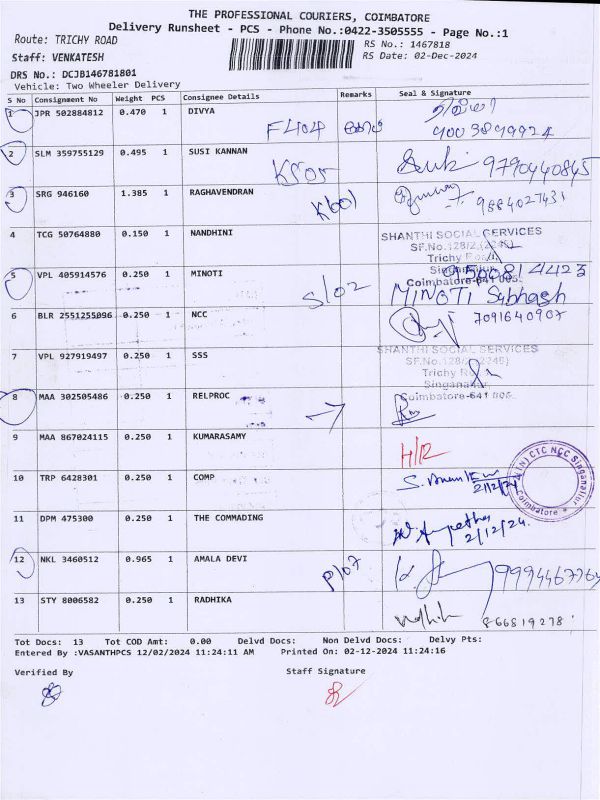 THE PROFESSIONAL COURIERS, COIMBATORE
Delivery Runsheet - PCS - Phone No.:0422-3505555 - Page No.:1
Route: TRICHY ROAD
RS No.: 1467818
Staff: VENKATESH
RS Date: 02-Dec-2024
DRS No.: DCJB146781801
Vehicle: Two Wheeler Delivery
S No Consignment No Weight PCS Consignee Details Remarks Seal & Signature
1 JPR 502884812 0.470 1 DIVYA F404
2 SLM 359755129 0.495 1 SUSI KANNAN 9790440845
3 SRG 946160 1.385 1 RAGHAVENDRAN 9884027431
4 TCG 50764880 0.150 1 NANDHINI
SHANTHI SOCIAL SERVICES
Trichy Road,
Singanallur,
Coimbatore-641 005.
5 VPL 405914576 0.250 1 MINOTI S102 MINOTI Subhash
6 BLR 2551255096 0.250 1 NCC 7091640907
7 VPL 927919497 0.250 1 SSS
SHANTHI SOCIAL SERVICES
Trichy
Singanallur,
Coimbatore-641 005.
8 MAA 302505486 0.250 1 RELPROC
9 MAA 867024115 0.250 1 KUMARASAMY H/R
10 TRP 6428301 0.250 1 COMP 2/12/24
11 DPM 475300 0.250 1 THE COMMADING 2/12/24.
12 NKL 3460512 0.965 1 AMALA DEVI P107
13 STY 8006582 0.250 1 RADHIKA 866819278
Tot Docs: 13 Tot COD Amt: 0.00 Delvd Docs: Non Delvd Docs: Delvy Pts:
Entered By :VASANTHPCS 12/02/2024 11:24:11 AM Printed On: 02-12-2024 11:24:16
Verified By Staff Signature